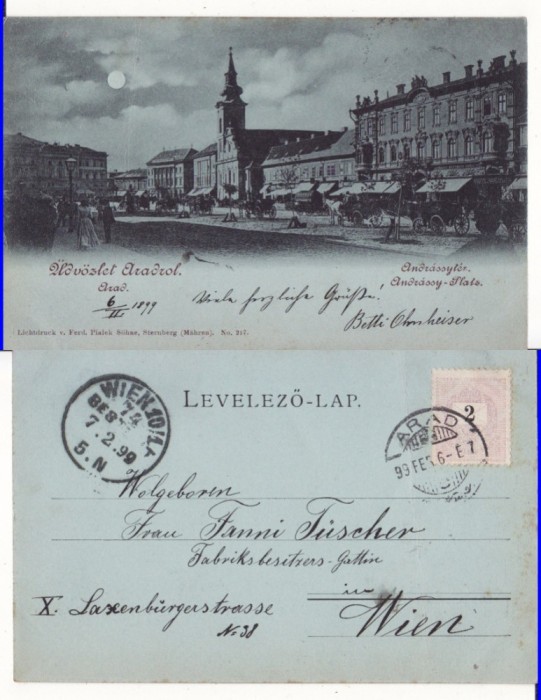 Üdvözlet Aradról.
Arad.
Andrássytér.
Andrássy-Platz.
6/II 1899
Viele herzliche Grüße!
Betti Ohnheiser
Lichtdruck v. Ferd. Pialek Söhne, Sternberg (Mähren). No. 247.
LEVELEZŐ-LAP.
WIEN 10/1
74
BEST
7.2.99
5.N
2
ARAD
99 FEB 6-E7
Wolgeboren
Frau Fanni Tüscher
Fabriksbesitzers-Gattin
in
X. Laxenbürgerstrasse
No 38
Wien